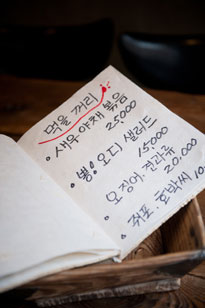 먹을 꺼리
• 새우 야채 볶음
25.000
• 뽕! 오디 샐러드
15000
오징어. 견과류
20.000
• 쥐포. 호박씨 10